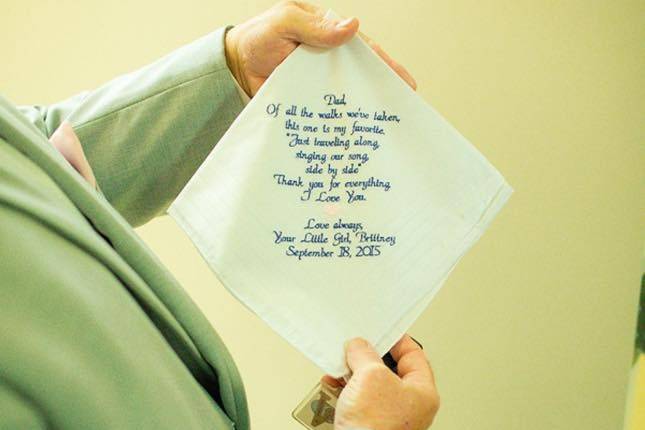 Dad,
Of all the walks we've taken,
this one is my favorite.
"Just traveling along,
singing our song,
side by side"
Thank you for everything.
I Love You.
Love always,
Your Little Girl, Brittney
September 18, 2015